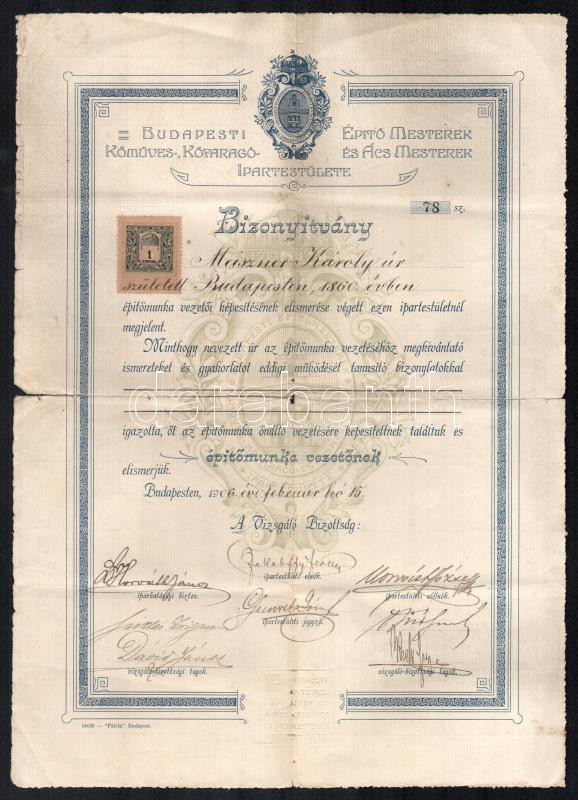 BUDAPESTI ÉPITŐ MESTEREK
KŐMŰVES-, KŐFARAGÓ- ÉS ÁCS MESTEREK
IPARTESTÜLETE
78 sz.
Bizonyitvány
1
Maszner Károly úr
született Budapesten, 1860. évben
épitőmunka vezetői képesitésének elismerése végett ezen ipartestületnél
megjelent.
Minthogy nevezett úr az épitőmunka vezetéséhez megkivántató
ismereteket és gyakorlatot eddigi működését tanusitó bizonylatokkal
databanth
igazolta, őt az épitőmunka önálló vezetésére képesitettnek találtuk és
épitőmunka vezetőnek
elismerjük.
Budapesten, 1906 évi február hó 15.
A Vizsgáló Bizottság:
Dr Horváth János
iparhatósági biztos.
ipartestületi elnök.
ipartestületi alelnök.
ipartestületi jegyző.
Dávid János
vizsgáló-bizottsági tagok.
vizsgáló-bizottsági tagok.
"Pátria" Budapest.